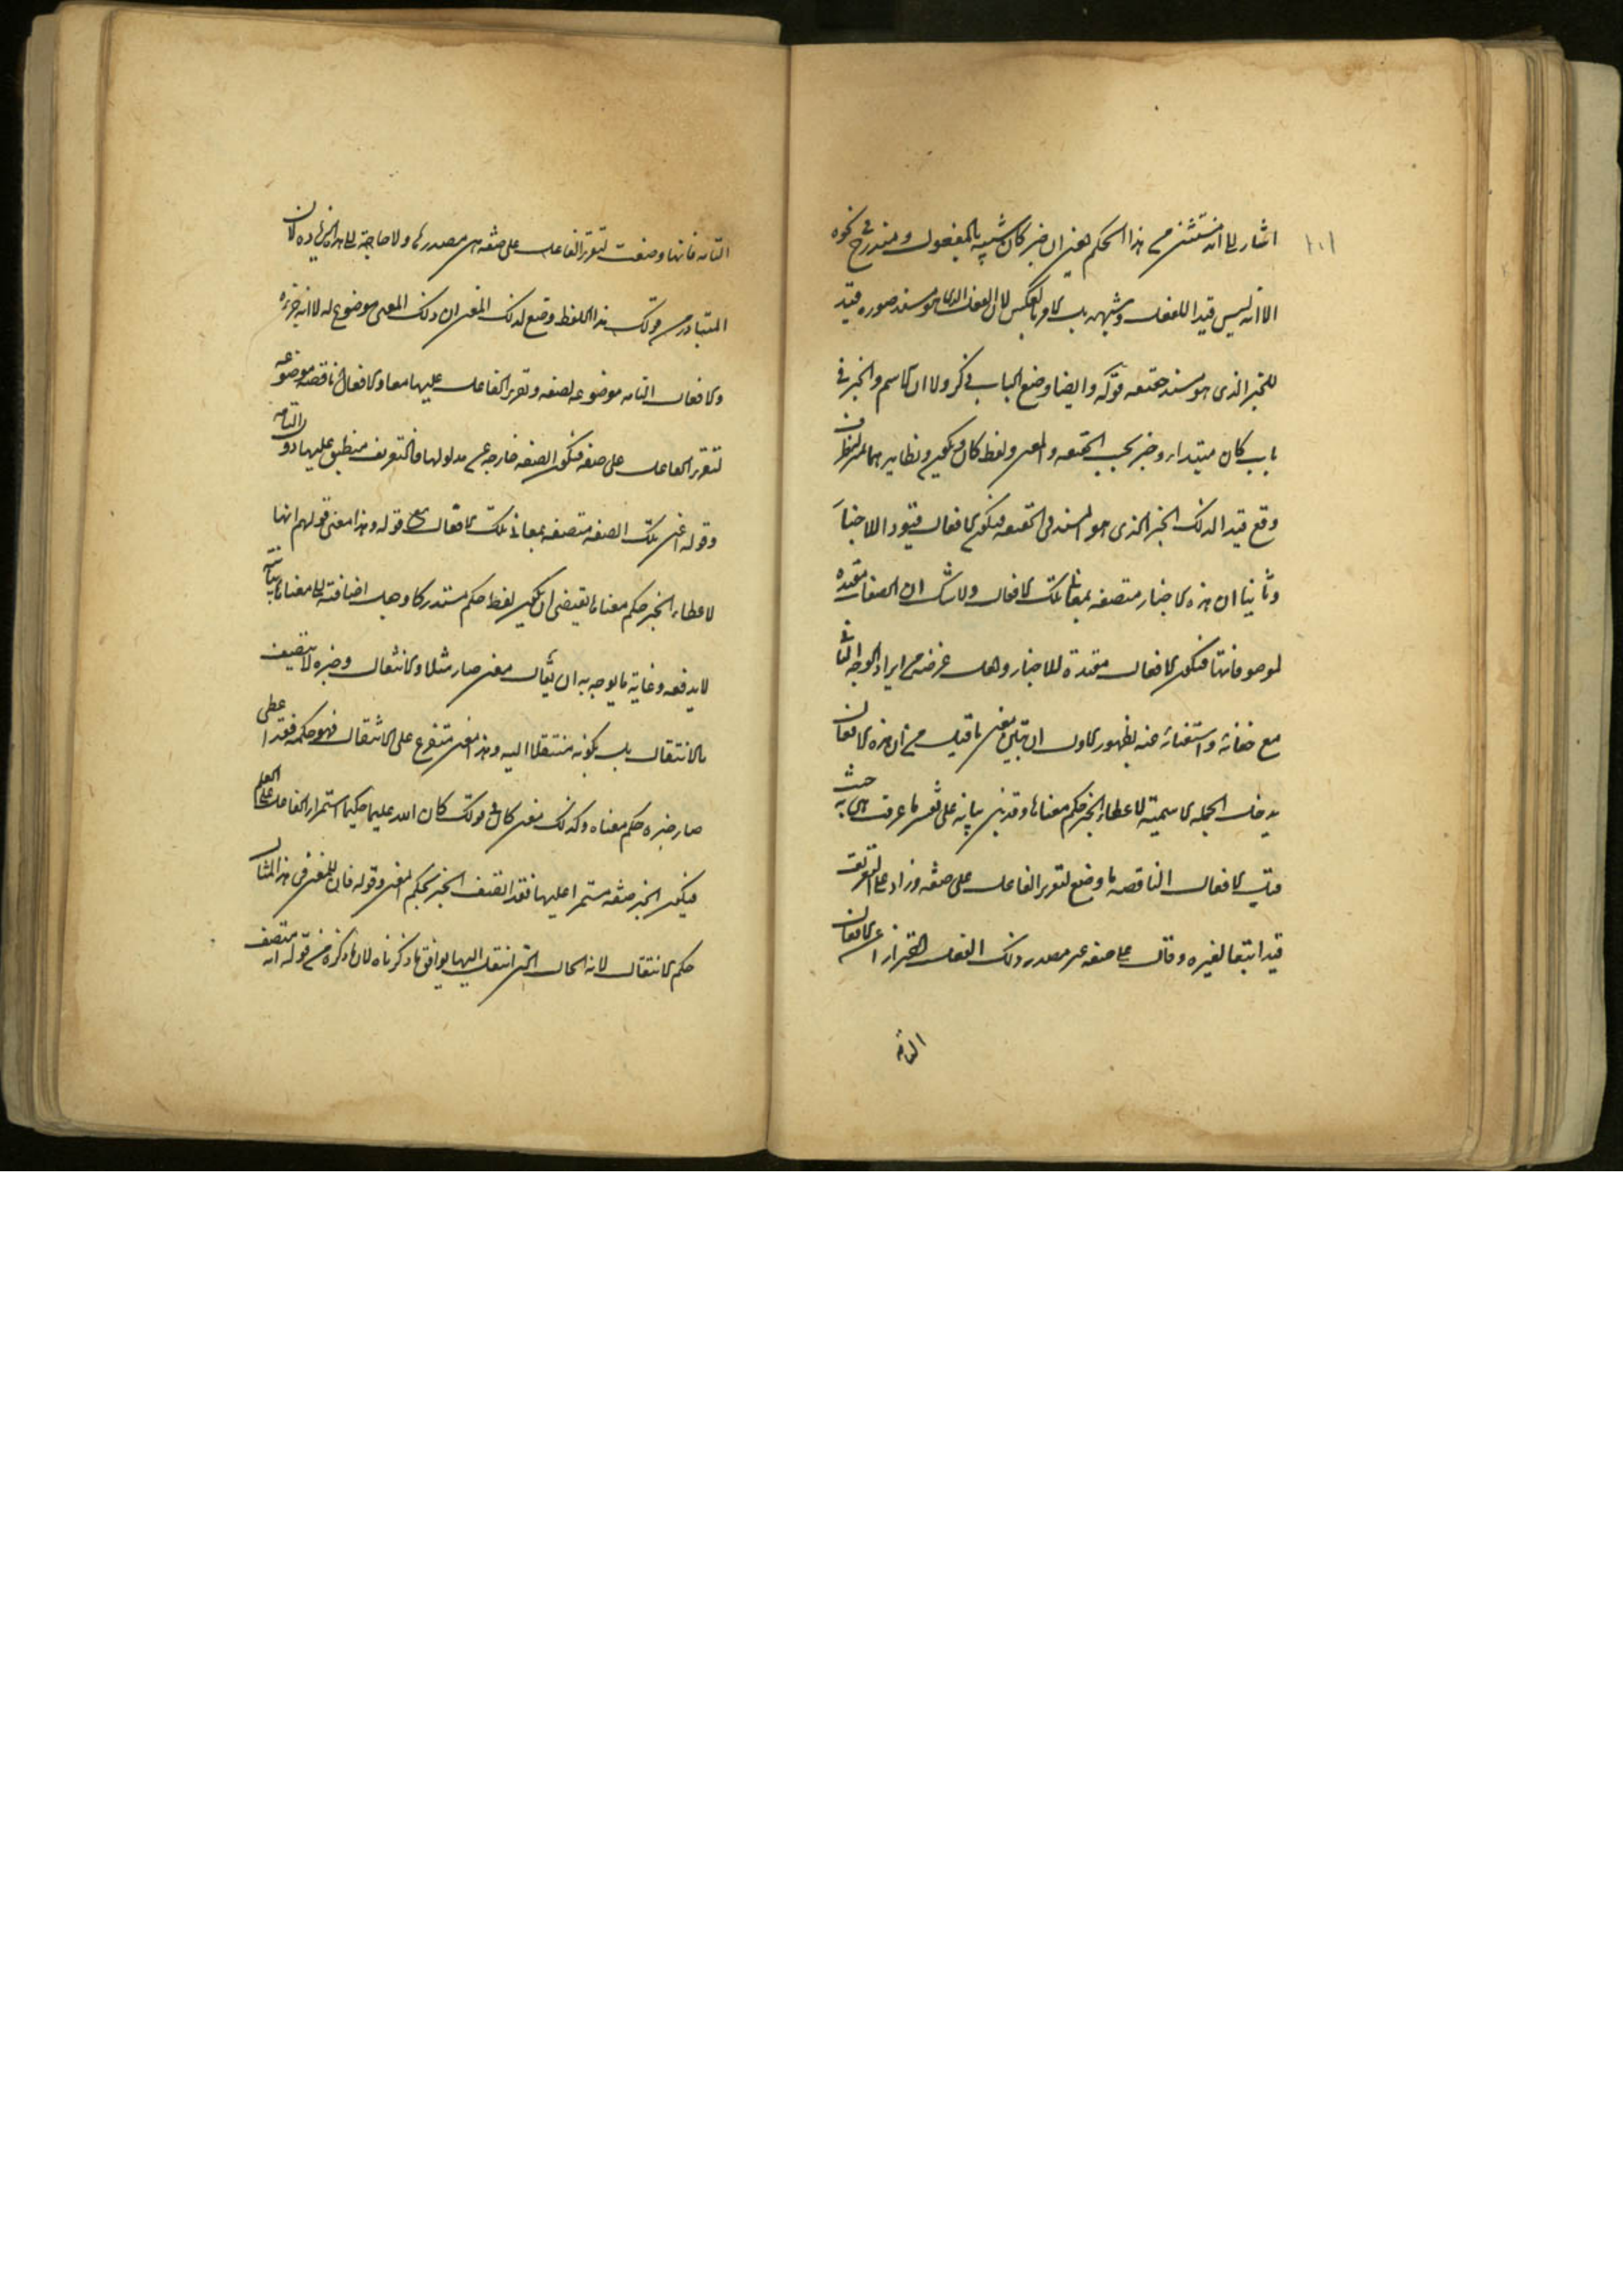 ١٠١
اشار الى انه مستثنى من هذا الحكم اعنى ان خبر كان شبيه بالمفعول ومندرج فى نحوه
الا انه ليس قيدا للفعل وشبهه بل الامر بالعكس لان الفعل الذى هو مسند صورة قيد
للخبر الذى هو مسند حقيقه قوله وايضا وضع الباب فى ذكر ولا ان الاسم والخبر فى
باب كان مبتدا وخبر بحسب الحقيقه والمعنى ولفظ كان ويكون ونظايرهما
وقع قيدا لذلك الخبر الذى هو المسند فى الحقيقه فيكون الافعال قيودا للاخبار
وثانيا ان هذه الاخبار متصفه بمعانى تلك الافعال ولا شك ان الصفات مقيده
لموصوفاتها فيكون الافعال مقيدة للاخبار ولعل غرضه من ايراد الوجه الثانى
مع خفائه واستغنائه عنه بظهور الاول ان يتبين معنى ما قيل من ان هذه الافعال
يدخل الجمله الاسمية لاعطاء الخبر حكم معناها وقد بين بيانه على تفسير ما عرفت به حيث
قيل الافعال الناقصه ما وضع لتقرير الفاعل على صفه وزاد على التعريف
قيدا تبعا لغيره وقال على صفه غير مصدر ذلك الفعل احترازا عن الافعال
التامه
التامه فانها وضعت لتقرير الفاعل على صفه هى مصدرها ولا حاجة الى هذه الزياده لان
المتبادر من قولك هذا اللفظ وضع لذلك المعنى ان ذلك المعنى موضوع له لا انه جزءه
والافعال التامه موضوعه لصفه وتقرير الفاعل عليها معا والافعال الناقصه موضوعه
لتقرير الفاعل على صفه فتكون الصفه خارجه عن مدلولها فالتعريف منطبق عليها دون التامه
وقوله اعنى تلك الصفه متصفه بمعانى تلك الافعال مع قوله وهذا معنى قولهم انها
لاعطاء الخبر حكم معناها يقتضى ان يكون لفظ حكم مستدركا وجعل اضافته الى معناها بيانيه
لا يدفعه وغاية ما يوجه به ان يقال معنى صار مثلا الانتقال وخبره لا يتصف
بالانتقال بل بكونه منتقلا اليه وهذا معنى متفرع على الانتقال فهو حكمه فقد اعطى
صار خبره حكم معناه وكذلك معنى كان فى قولك كان الله عليما حكيما استمرار الفاعل على العلم
فيكون الخبر صفه مستمرا عليها فقد اتصف الخبر بحكم المعنى وقوله فان للمعنى فى هذا المثال
حكم الانتقال لانه الحال التى انتقل اليها يوافق ما ذكرناه لان ما ذكره من قوله انه متصف